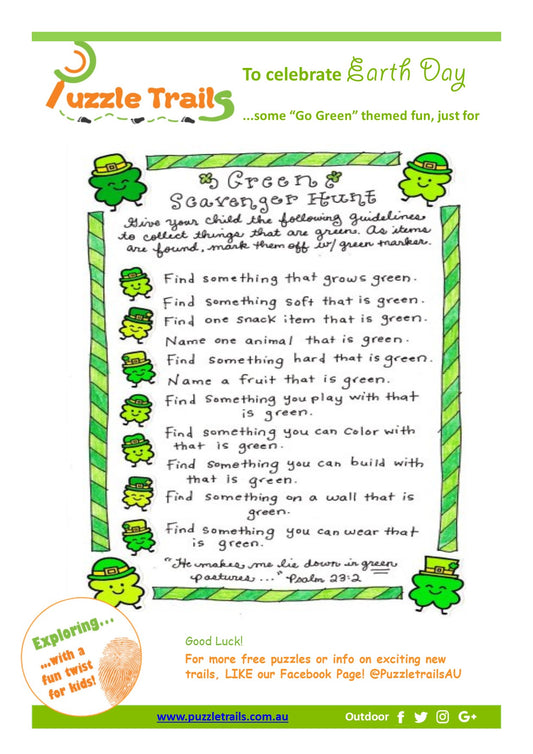 Puzzle Trails
To celebrate Earth Day
...some “Go Green” themed fun, just for
Green
Scavenger Hunt
Give your child the following guidelines
to collect things that are green. As items
are found, mark them off w/ green marker.
Find something that grows green.
Find something soft that is green.
Find one snack item that is green.
Name one animal that is green.
Find something hard that is green.
Name a fruit that is green.
Find something you play with that
is green.
Find something you can color with
that is green.
Find something you can build with
that is green.
Find something on a wall that is
green.
Find something you can wear that
is green.
"He makes me lie down in green
pastures ..." Psalm 23:2
Exploring...
...with a
fun twist
for kids!
Good Luck!
For more free puzzles or info on exciting new
trails, LIKE our Facebook Page! @PuzzletrailsAU
www.puzzletrails.com.au
Outdoor f G+